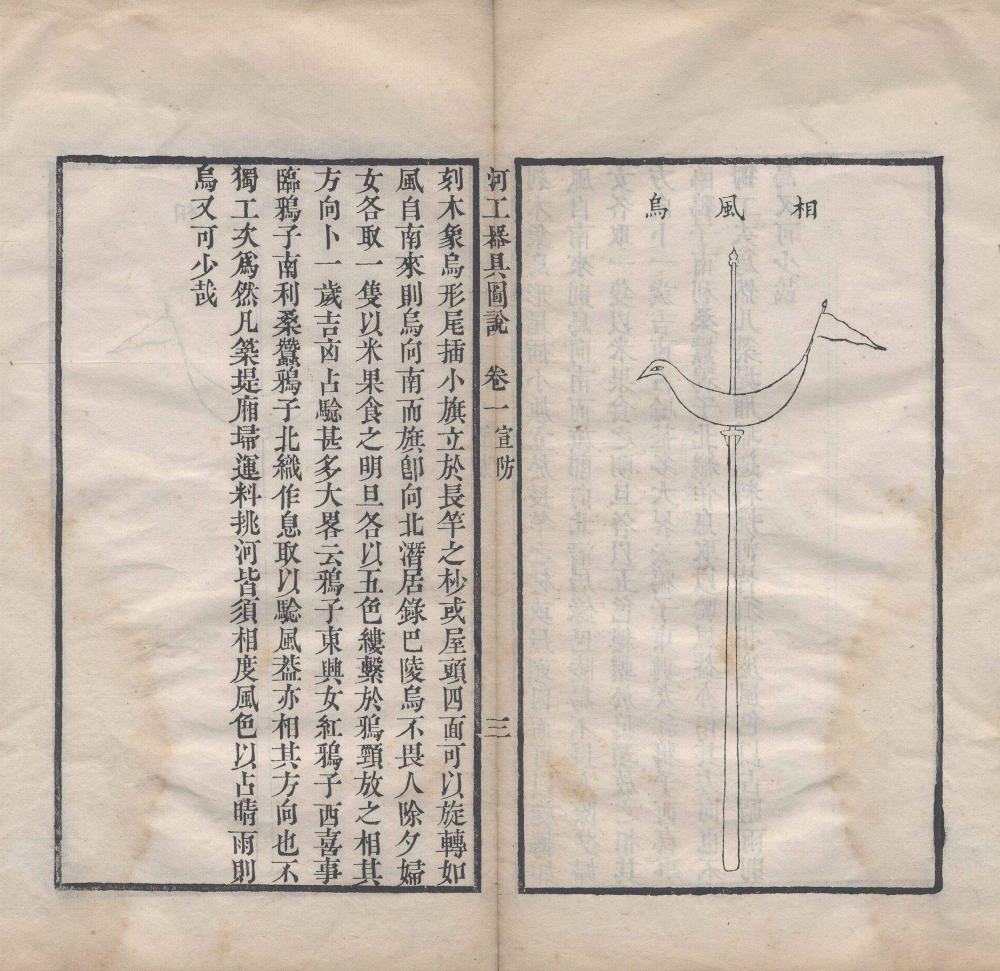 相風烏
河工器具圖說 卷一 宣防 三
刻木象烏形尾插小旗立於長竿之杪或屋頭四面可以旋轉如
風自南來則烏向南而旗卽向北潛居錄巴陵烏不畏人除夕婦
女各取一隻以米果食之明旦各以五色縷繫於鴉頸放之相其
方向卜一歲吉凶占騐甚多大畧云鴉子東興女紅鴉子西喜事
臨鴉子南利桑蠶鴉子北織作息取以騐風葢亦相其方向也不
獨工次爲然凡築堤廂埽運料挑河皆須相度風色以占晴雨則
烏又可少哉